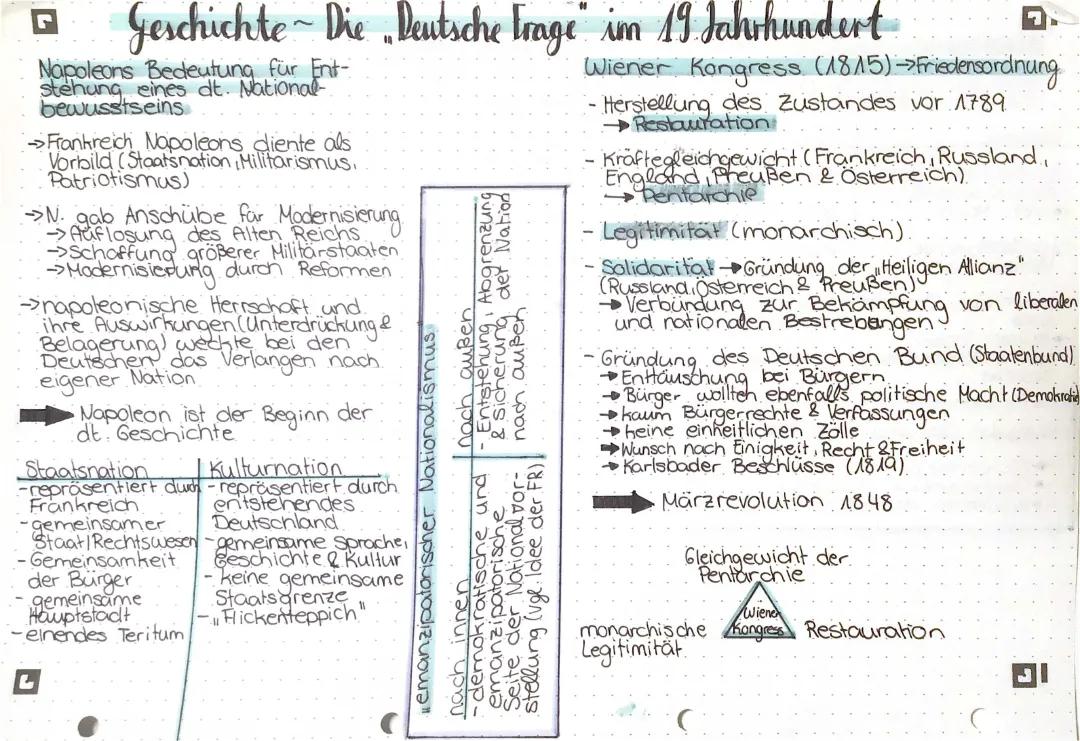 Geschichte ~ Die „Deutsche Frage" im 19 Jahrhundert
Napoleons Bedeutung für Ent-
stehung eines dt. National-
bewusstseins
→ Frankreich Napoleons diente als
Vorbild (Staatsnation, Militarismus,
Patriotismus)
→ N. gab Anschübe für Modernisierung
→ Auflösung des Alten Reichs
→ Schaffung größerer Militärstaaten
→ Modernisierung durch Reformen
→ napoleonische Herrschaft und
ihre Auswirkungen (Unterdrückung &
Belagerung) weckte bei den
Deutschen das Verlangen nach
eigener Nation
→ Napoleon ist der Beginn der
dt. Geschichte
Staatsnation
- repräsentiert durch
Frankreich
- gemeinsamer
Staat/Rechtswesen
- Gemeinsamkeit
der Bürger
- gemeinsame
Hauptstadt
- einendes Teritum
Kulturnation
- repräsentiert durch
entstehendes
Deutschland
- gemeinsame Sprache,
Geschichte & Kultur
- keine gemeinsame
Staatsgrenze
- „Flickenteppich"
„emanzipatorischer Nationalismus
nach innen
- demokratische und
emanzipatorische
Seite der Nationalvor-
stellung (vgl. Idee der FR)
nach außen
- Entstehung, Abgrenzung
& Sicherung der Nation
nach außen
Wiener Kongress (1815) → Friedensordnung
- Herstellung des Zustandes vor 1789
→ Restauration
- Kräftegleichgewicht (Frankreich, Russland,
England, Preußen & Österreich)
→ Pentarchie
- Legitimität (monarchisch)
- Solidarität → Gründung der „Heiligen Allianz"
(Russland, Österreich & Preußen)
→ Verbündung zur Bekämpfung von liberalen
und nationalen Bestrebungen
- Gründung des Deutschen Bund (Staatenbund)
→ Enttäuschung bei Bürgern
→ Bürger wollten ebenfalls politische Macht (Demokratie
→ kaum Bürgerrechte & Verfassungen
→ keine einheitlichen Zölle
→ Wunsch nach Einigkeit, Recht & Freiheit
→ Karlsbader Beschlüsse (1819)
→ Märzrevolution 1848
Gleichgewicht der
Pentarchie
Wiener
Kongress
monarchische
Legitimität
Restauration